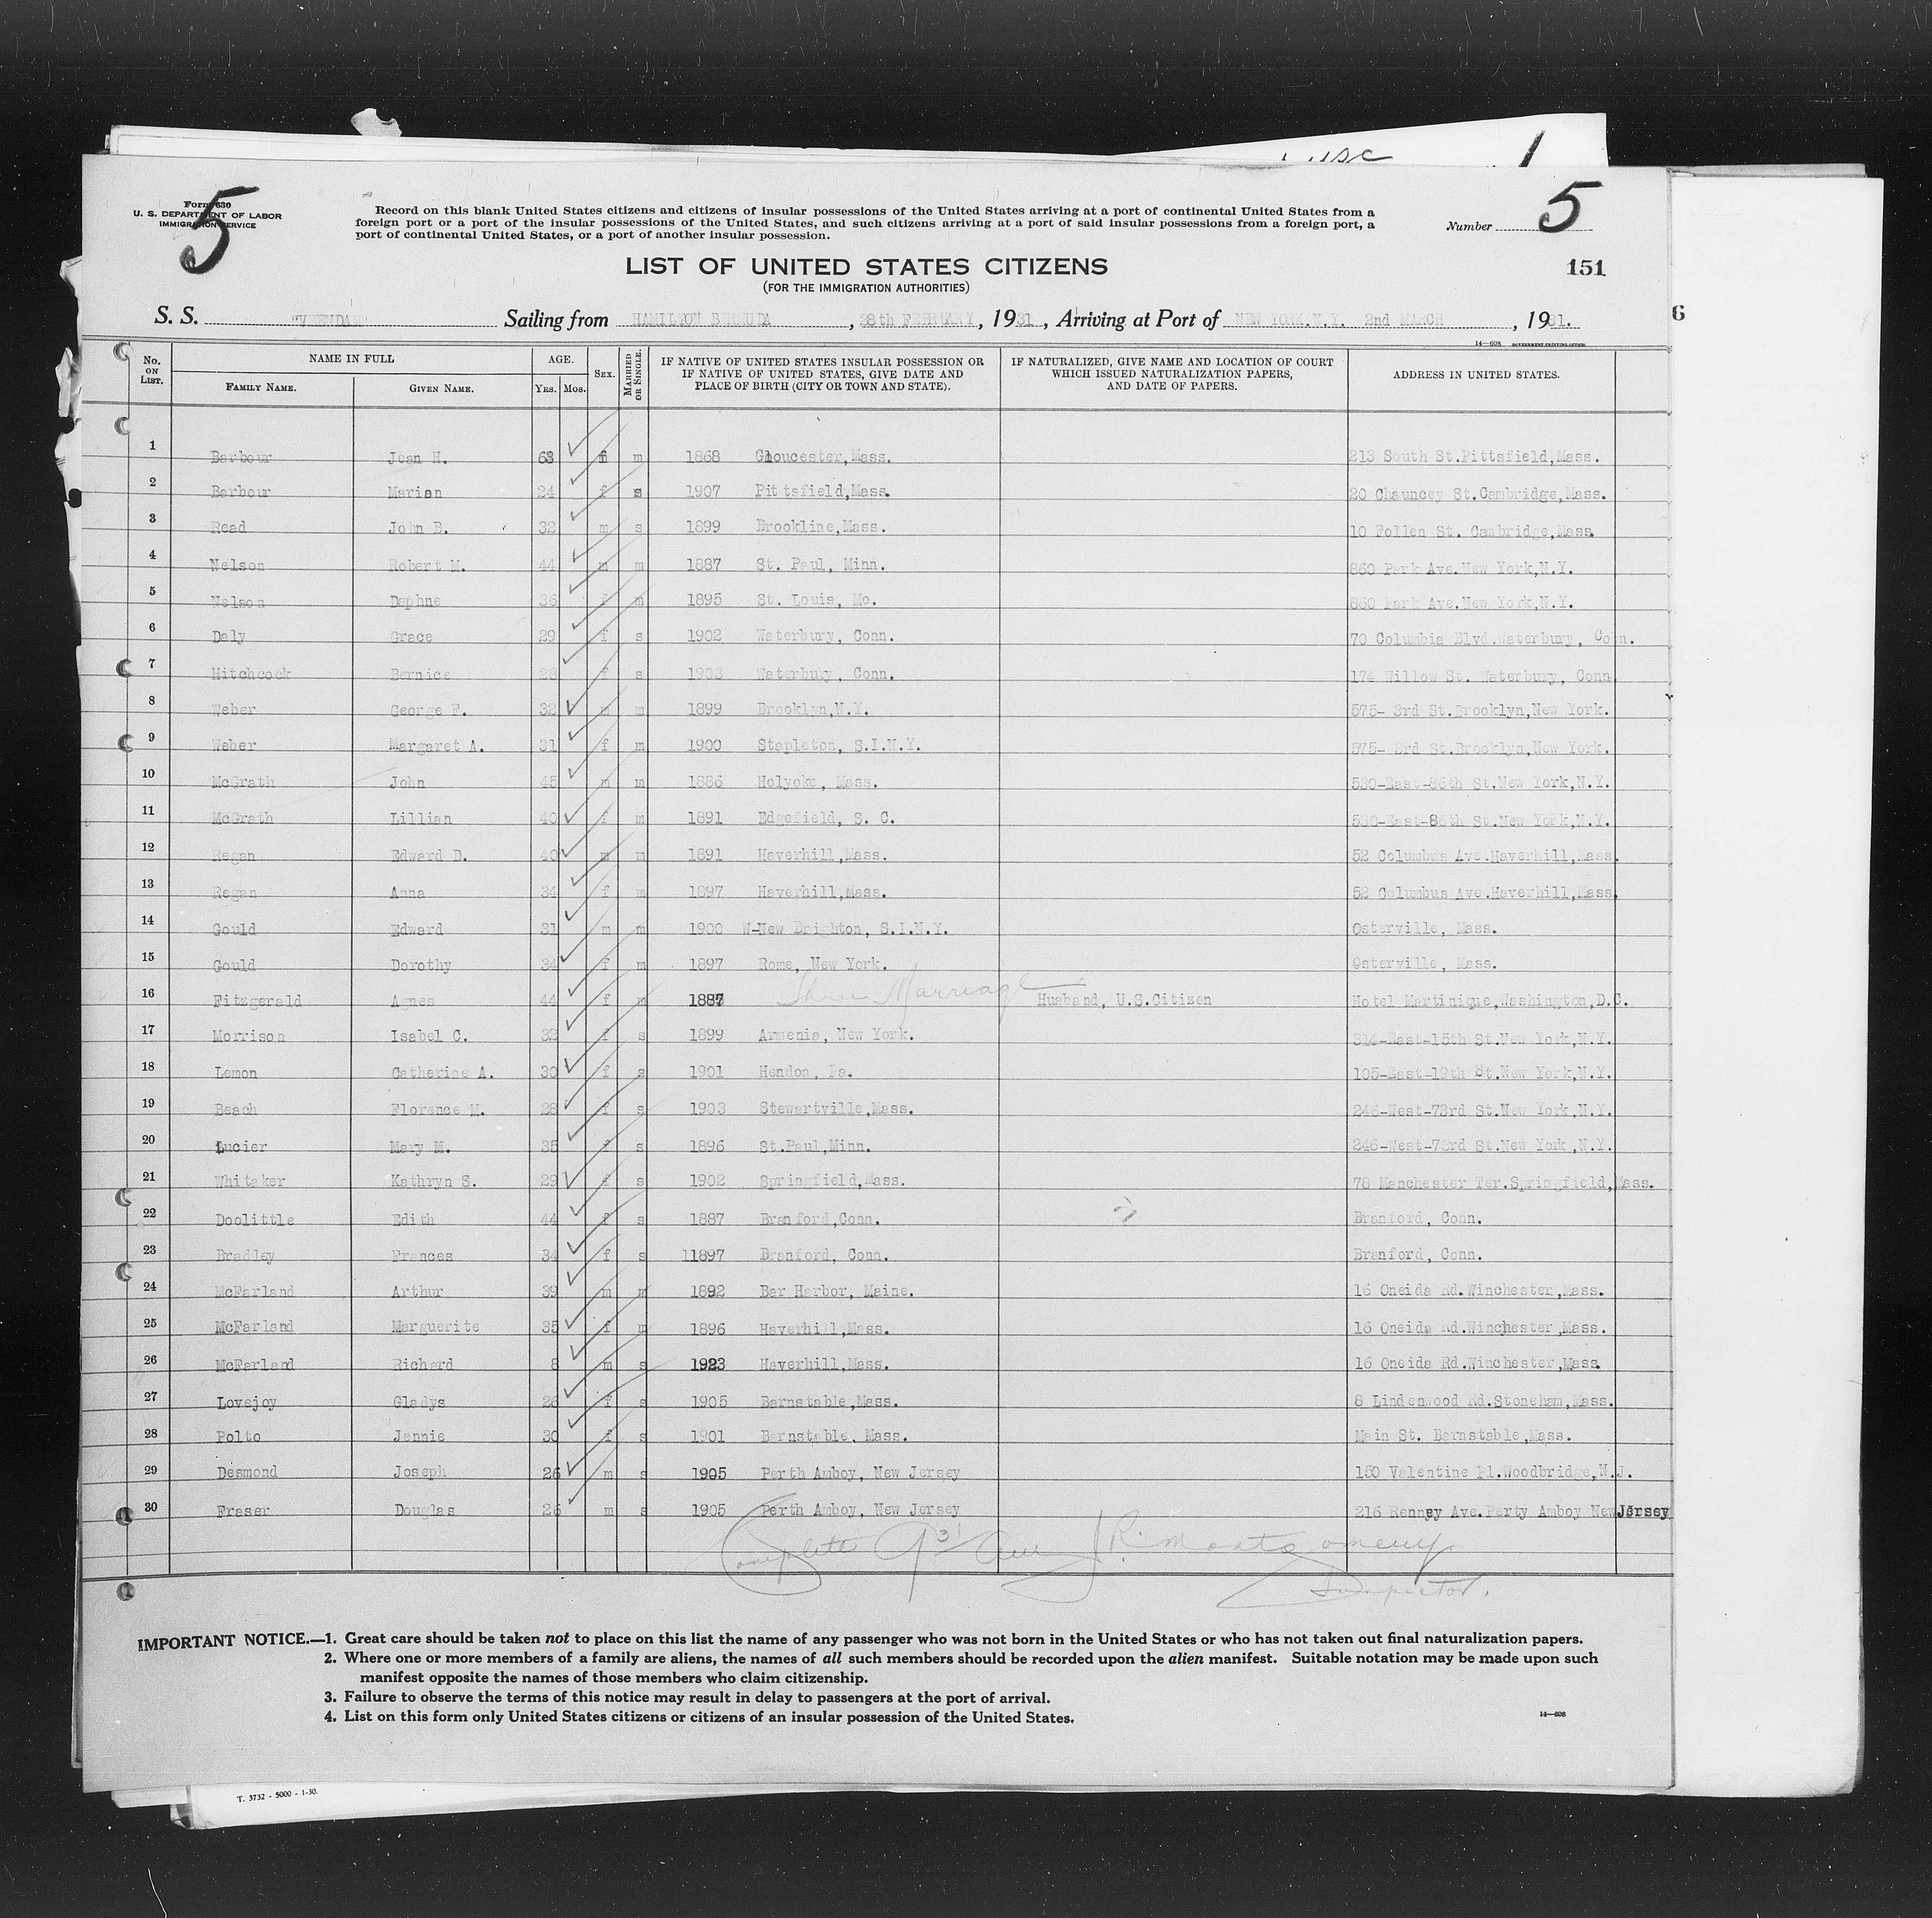 1
5
Form 630
U. S. DEPARTMENT OF LABOR
IMMIGRATION SERVICE
Record on this blank United States citizens and citizens of insular possessions of the United States arriving at a port of continental United States from a
foreign port or a port of the insular possessions of the United States, and such citizens arriving at a port of said insular possessions from a foreign port, a
port of continental United States, or a port of another insular possession.
Number 5
LIST OF UNITED STATES CITIZENS
(FOR THE IMMIGRATION AUTHORITIES)
151
S. S. "VEENDAM" Sailing from HAMILTON BERMUDA, 28th FEBRUARY, 1931, Arriving at Port of NEW YORK.N.Y. 2nd MARCH, 1931.
6
14—608 GOVERNMENT PRINTING OFFICE
No. ON LIST. NAME IN FULL FAMILY NAME. GIVEN NAME. AGE. YRS. MOS. SEX. MARRIED OR SINGLE. IF NATIVE OF UNITED STATES INSULAR POSSESSION OR IF NATIVE OF UNITED STATES, GIVE DATE AND PLACE OF BIRTH (CITY OR TOWN AND STATE). IF NATURALIZED, GIVE NAME AND LOCATION OF COURT WHICH ISSUED NATURALIZATION PAPERS, AND DATE OF PAPERS. ADDRESS IN UNITED STATES.
1 Barbour Jean H. 63 m 1868 Gloucester,Mass. 213 South St.Pittsfield,Mass.
2 Barbour Marian 24 f s 1907 Pittsfield,Mass. 20 Chauncey St.Cambridge,Mass.
3 Read John B. 32 m s 1899 Brookline,Mass. 10 Follen St. Cambridge,Mass.
4 Nelson Robert M. 44 m m 1887 St. Paul, Minn. 860 Park Ave.New York,N.Y.
5 Nelson Daphne 36 f m 1895 St. Louis, Mo. 860 Park Ave.New York,N.Y.
6 Daly Grace 29 f s 1902 Waterbury, Conn. 70 Columbia Blvd.Waterbury, Conn.
7 Hitchcock Bernice 28 f s 1903 Waterbury, Conn. 174 Willow St. Waterbury, Conn
8 Weber George F. 32 m m 1899 Brooklyn,N.Y. 575- 3rd St.Brooklyn,New York.
9 Weber Margaret A. 31 f m 1900 Stapleton, S.I.N.Y. 575- 3rd St.Brooklyn,New York.
10 McGrath John 45 m m 1886 Holyoke, Mass. 530-East-86th St.New York,N.Y.
11 McGrath Lillian 40 f m 1891 Edgefield, S. C. 530-East-86th St.New York,N.Y.
12 Regan Edward D. 40 m m 1891 Haverhill,Mass. 52 Columbus Ave.Haverhill,Mass.
13 Regan Anna 34 f m 1897 Haverhill,Mass. 52 Columbus Ave.Haverhill,Mass.
14 Gould Edward 31 m m 1900 W-New Brighton, S.I.N.Y. Osterville, Mass.
15 Gould Dorothy 34 f m 1897 Rome, New York. Osterville, Mass.
16 Fitzgerald Agnes 44 f m 1887 Thru Marriage Husband, U.S.Citizen Hotel Martinique,Washington,D.C.
17 Morrison Isabel C. 32 f s 1899 Armenia, New York. 314-East-15th St.New York,N.Y.
18 Lemon Catherine A. 30 f s 1901 Hendon, Pa. 105-East-19th St.New York,N.Y.
19 Beach Florence M. 28 f s 1903 Stewartville,Mass. 246-West-73rd St.New York,N.Y.
20 Lucier Mary M. 35 f s 1896 St.Paul,Minn. 246-West-73rd St.New York,N.Y.
21 Whitaker Kathryn S. 29 f s 1902 Springfield,Mass. 78 Manchester Ter.Springfield,Mass.
22 Doolittle Edith 44 f s 1887 Branford,Conn. Branford, Conn.
23 Bradley Frances 34 f s 11897 Branford, Conn. Branford, Conn.
24 McFarland Arthur 39 m m 1892 Bar Harbor, Maine. 16 Oneida Rd.Winchester,Mass.
25 McFarland Marguerite 35 f m 1896 Haverhill,Mass. 16 Oneida Rd.Winchester,Mass.
26 McFarland Richard 8 m s 1923 Haverhill,Mass. 16 Oneida Rd.Winchester,Mass.
27 Lovejoy Gladys 26 f s 1905 Barnstable,Mass. 8 Lindenwood Rd.Stoneham,Mass.
28 Polto Jennie 30 f s 1901 Barnstable, Mass. Main St. Barnstable,Mass.
29 Desmond Joseph 26 m s 1905 Perth Amboy, New Jersey 150 Valentine Pl.Woodbridge,N.J.
30 Fraser Douglas 26 m s 1905 Perth Amboy, New Jersey 216 Renney Ave. Perty Amboy New Jersey
Complete J R. Montgomery
Inspector.
IMPORTANT NOTICE.—1. Great care should be taken not to place on this list the name of any passenger who was not born in the United States or who has not taken out final naturalization papers.
2. Where one or more members of a family are aliens, the names of all such members should be recorded upon the alien manifest. Suitable notation may be made upon such
manifest opposite the names of those members who claim citizenship.
3. Failure to observe the terms of this notice may result in delay to passengers at the port of arrival.
4. List on this form only United States citizens or citizens of an insular possession of the United States.
14—608
T. 3732 - 5000 - 1-30.